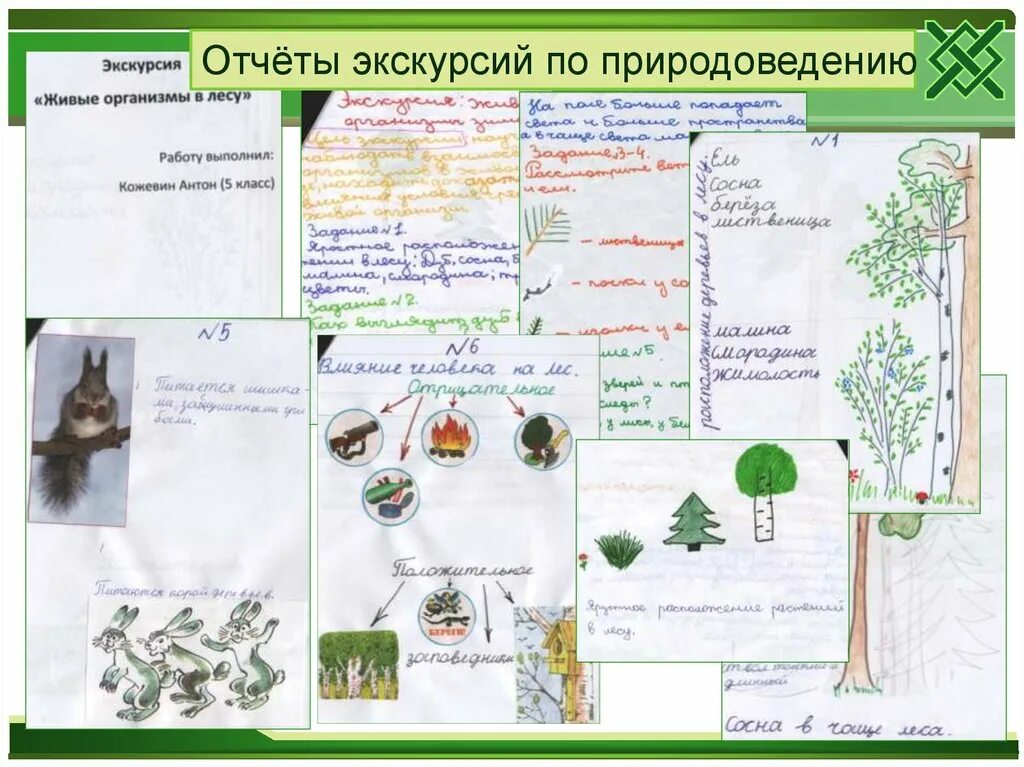 Отчёты экскурсий по природоведению
Экскурсия
«Живые организмы в лесу»
Работу выполнил:
Кожевин Антон (5 класс)
Экскурсия: жив
организмы зимн
Цель экскурсии: науч
наблюдать взаимос
организмов в живой
влияния условий сре
живой организм
Задание №1.
Ярусное расположен
тений в лесу: Дуб, сосна,
малина, смородина;
цветы.
Задание №2.
Как выглядит дуб в
На поле больше попадает
света и больше пространства
а в чаще света ма
Задание 3-4.
Рассмотрите вет
и ели.
– лиственица
– почки у со
– иголки у е
ние №5.
зверей и пт
следы?
№1
Ель
Сосна
берёза
лиственица
малина
смородина
жимолость
расположение деревьев в лесу.
№5
Питается шишка-
ми, засушенными гри
бами.
Питаются корой деревьев.
№6
Влияние человека на лес.
Отрицательное
Положительное
БЕРЕГИ!
заповедники
Ярусное расположение растений
в лесу.
ствол тонкий и
длинный
Сосна в чаще леса.